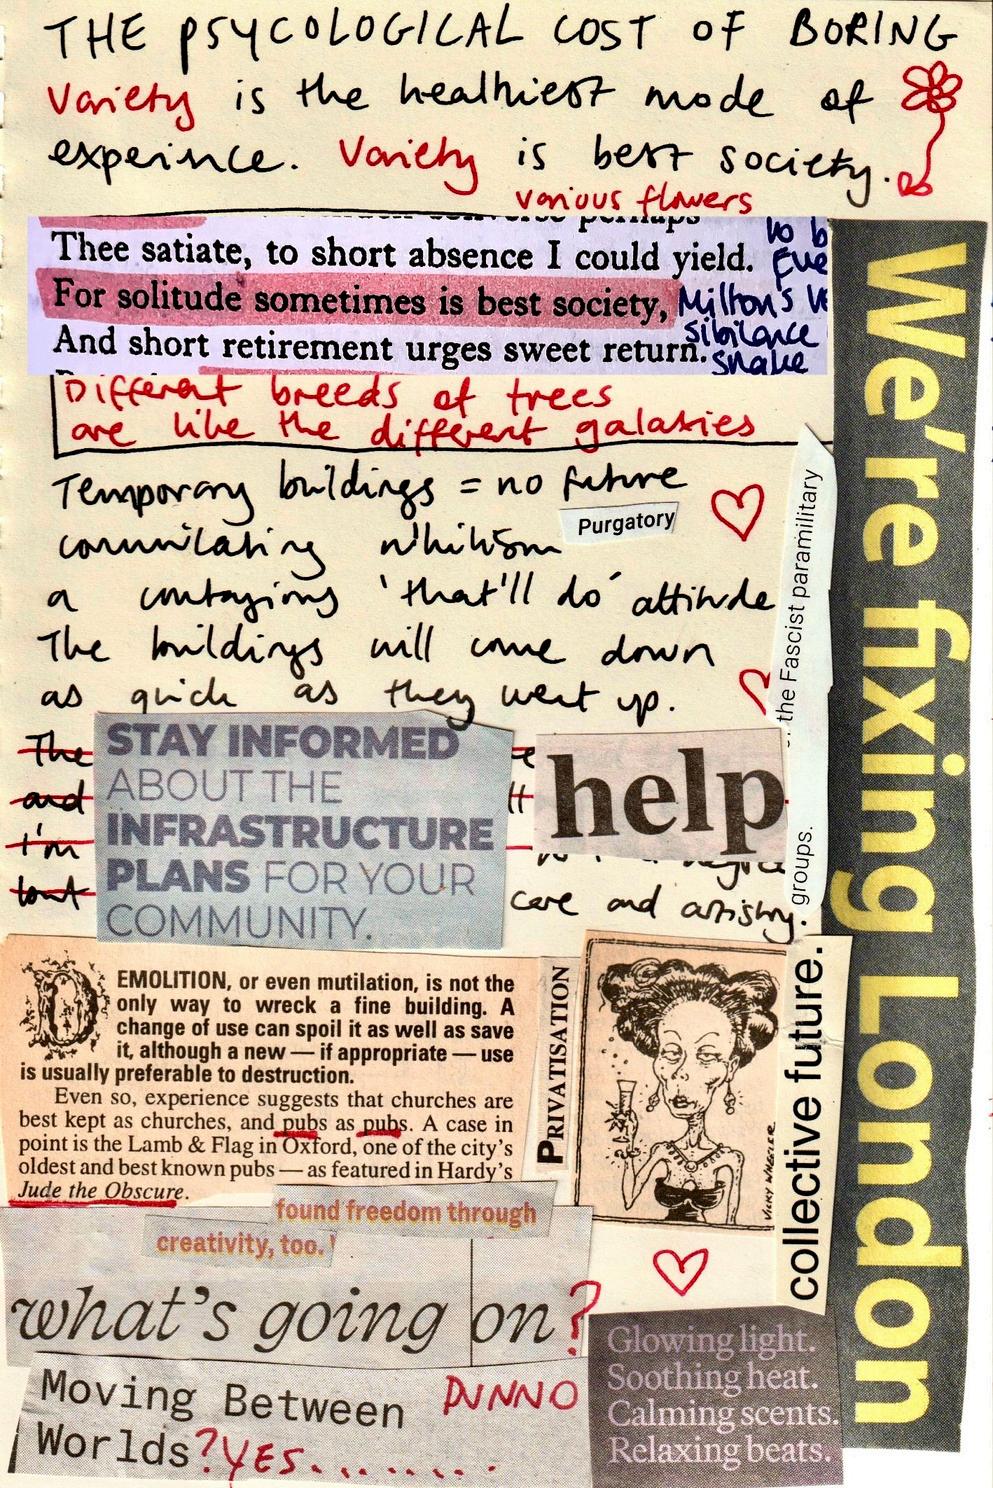 THE PSYCOLOGICAL COST OF BORING
Variety is the healthiest mode of
experince. Variety is best society.
various flowers
converse perhaps
Thee satiate, to short absence I could yield.
For solitude sometimes is best society,
And short retirement urges sweet return.
to b
Eve
Milton's
sibilance
snake
Different breeds of trees
are like the different galaxies
Temporary buildings = no future
Purgatory
communicating nihilism
a contagious 'that'll do' attitude
The buildings will come down
as quick as they went up.
The
and
I'm
but
care and artistry.
STAY INFORMED
ABOUT THE
INFRASTRUCTURE
PLANS FOR YOUR
COMMUNITY.
help
the Fascist paramilitary
groups.
We're fixing London
DEMOLITION, or even mutilation, is not the
only way to wreck a fine building. A
change of use can spoil it as well as save
it, although a new — if appropriate — use
is usually preferable to destruction.
Even so, experience suggests that churches are
best kept as churches, and pubs as pubs. A case in
point is the Lamb & Flag in Oxford, one of the city's
oldest and best known pubs — as featured in Hardy's
Jude the Obscure.
PRIVATISATION
VICKY WHEELER
collective future.
found freedom through
creativity, too.
what's going on?
Moving Between
Worlds? YES........
DUNNO
Glowing light.
Soothing heat.
Calming scents.
Relaxing beats.